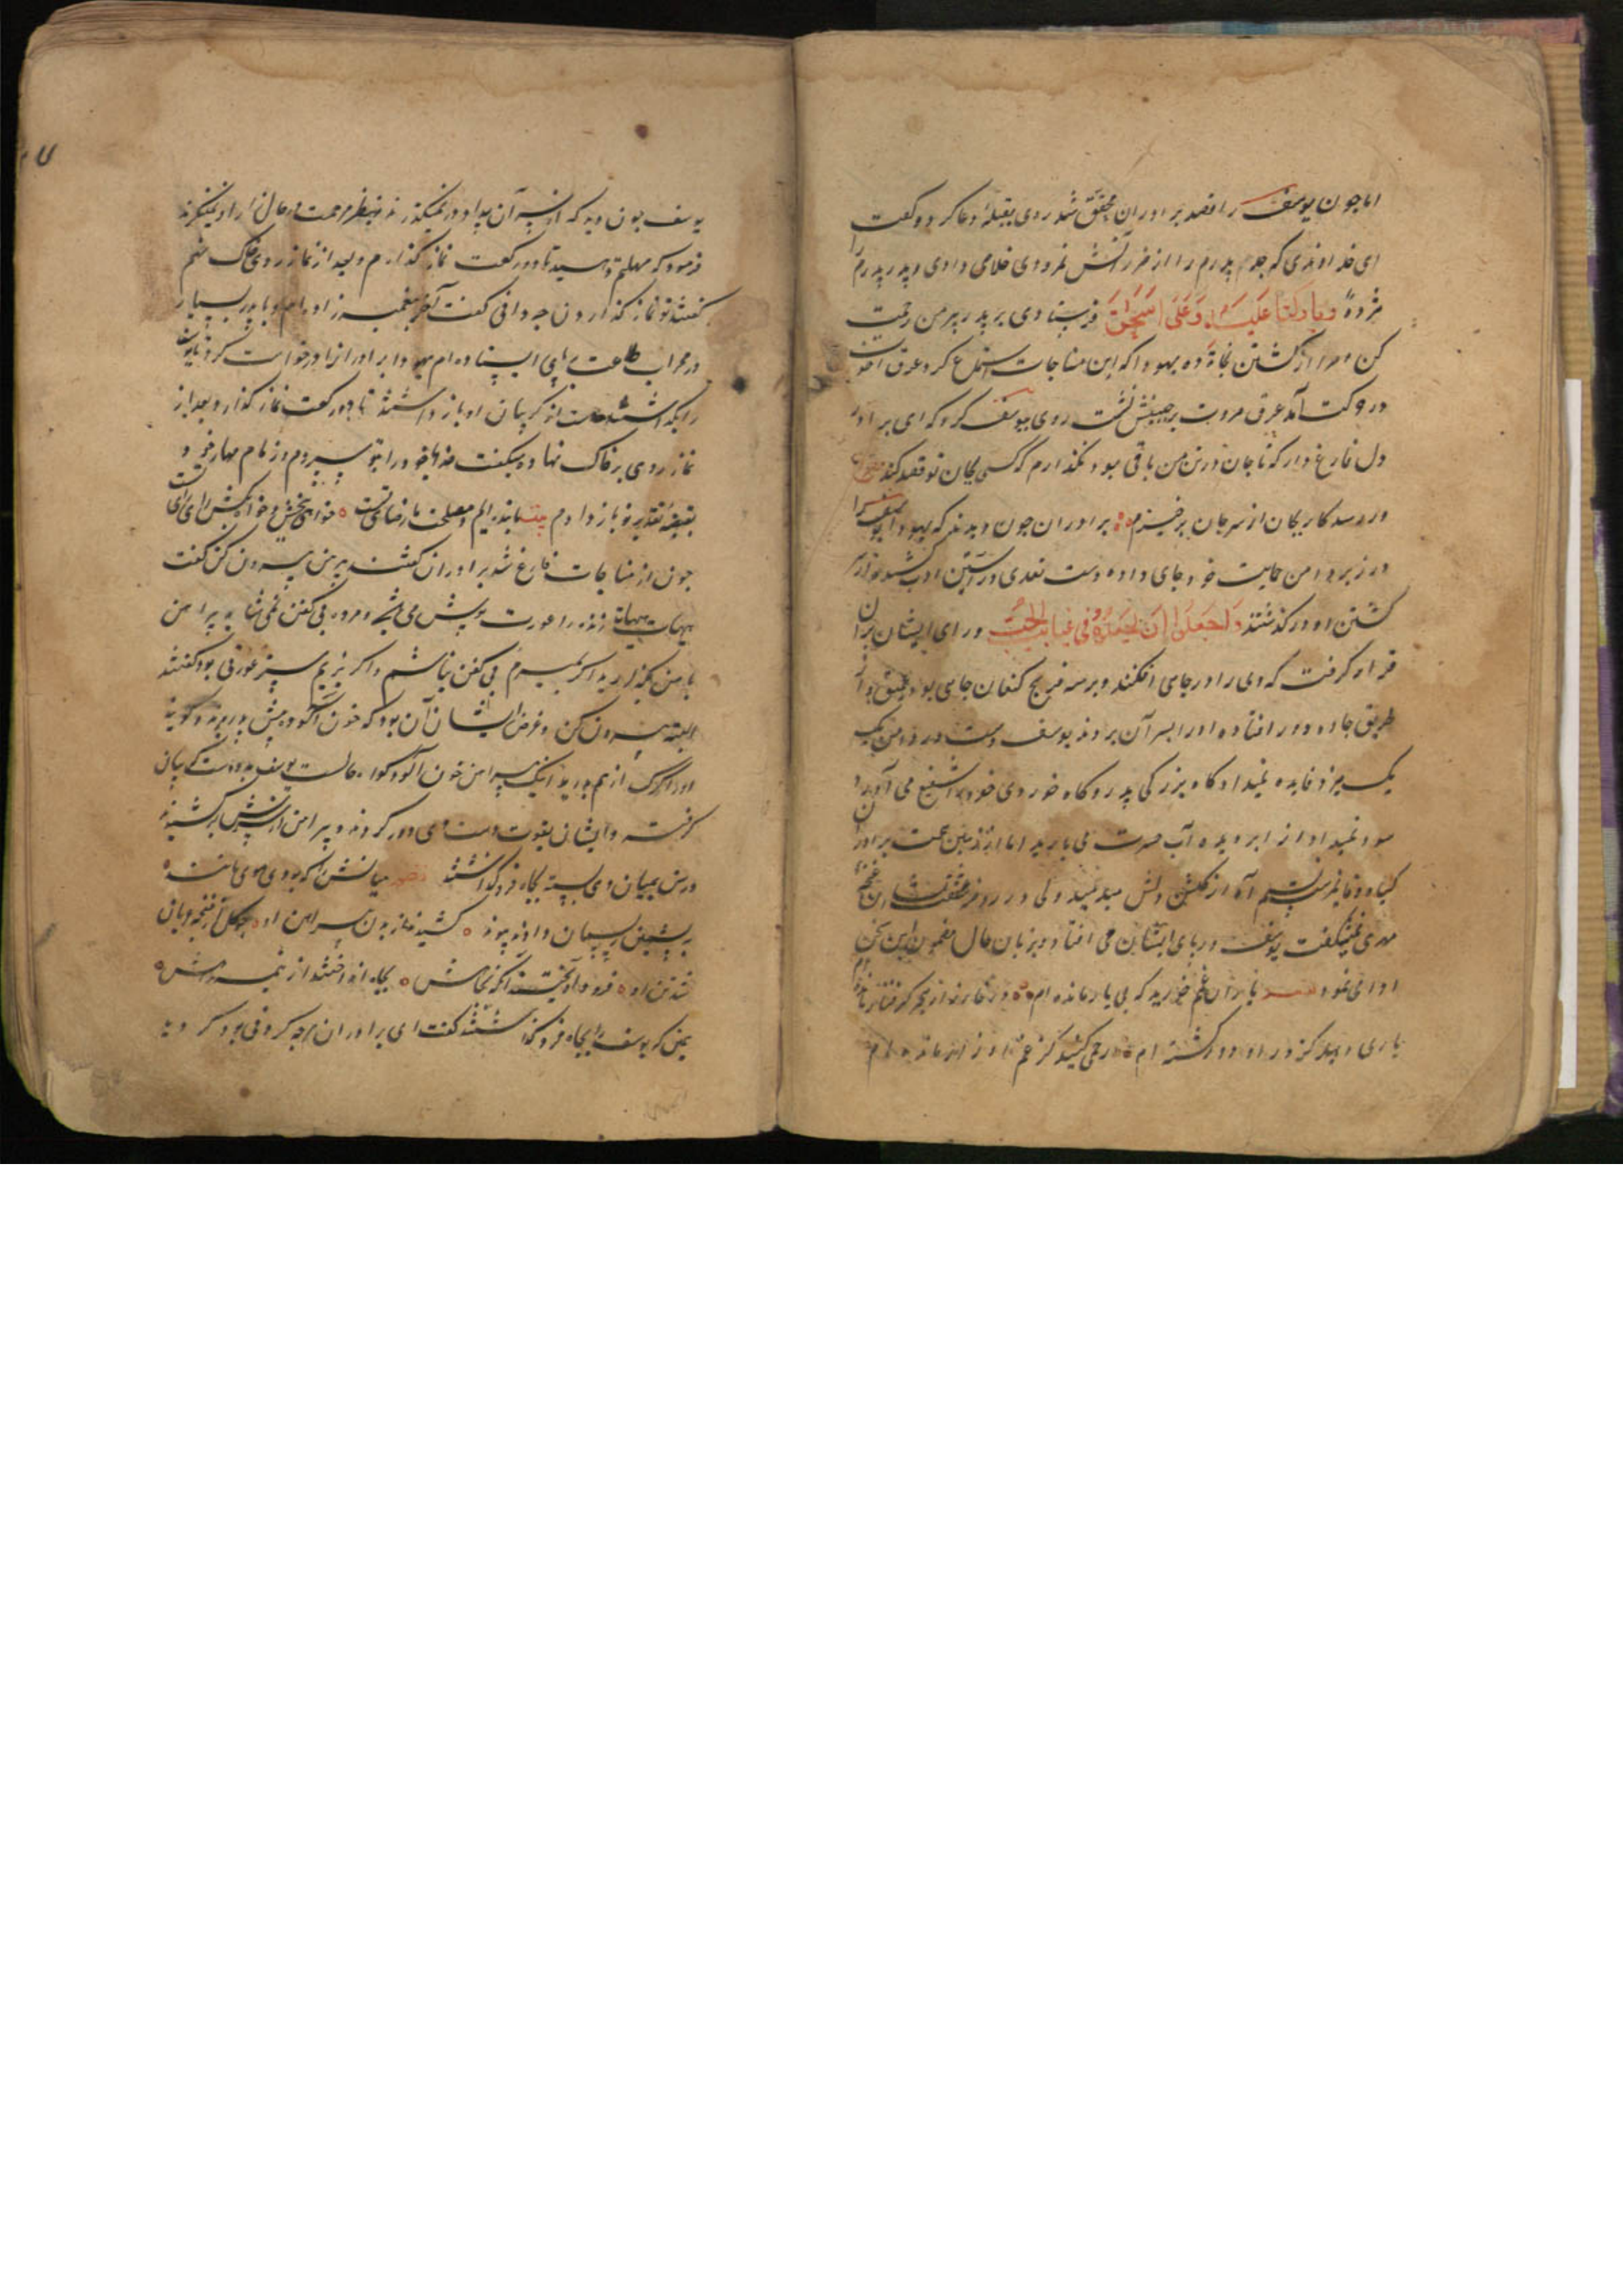 اما چون یوسف را قصد برادران محقق شد روی بقبلهٔ دعا کرد و گفت
ای خداوندی که جدم پدرم را از ضرر آتش نمرودی خلاصی دادی و پدر پدرم را
مژدهٔ وبارکنا علیه وعلی اسحق فرستادی بر پدر پیر من رحمت
کن و مرا از کشتن نجاة ده یهودا که این مناجات استماع کرد عرق اخوت
در حرکت آمد عرق مروت بر جبینش نشست روی بیوسف کرد که ای برادر
دل فارغ دار که تا جان در تن من باقی بود نگذارم که کسی بجان تو قصد کند
ور رسد کار بجان از سر جان برخیزم برادران چون دیدند که یهودا یوسف را
در زیر دامن حمایت خود جای داده دست تعدی در آستین ادب کشیدند از
کشتن او درگذشتند واجمعوا ان یجعلوه فی غیابت الجب و رای ایشان بران
قرار گرفت که وی را در چاهی افکنند و بر سه فرسخ کنعان چاهی بود عمیق و از
طریق جاده دور افتاده او را بسر آن بردند یوسف دست در دامن یک
یک میزد فایده نمیداد گاه بزرگی پدر و گاه خوردی خود را شفیع می آورد
سود نمیداد از ابر دیده آب حسرت می بارید اما از زمین محبت برادران
گیاه وفا نمیرست نسیم آه از گلشن دلش میدمید ولی در روضه شفقت شان غنچهٔ
مهری نمیشکفت یوسف در پای ایشان می افتاد و بزبان حال مضمون این سخن
ادا می نمود یاران غم خورید که بی یار مانده ام در خارزار هجر گرفتار مانده ام
یاری دهید کز در او دور گشته ام رحمی کنید کز غم او زار مانده ام
یوسف چون دید که از سر آن بیداد در نمیگذرند و بنظر مرحمت در حال زار او نمینگرند
فرمود که مهلتم دهید تا دو رکعت نماز گذارم و بعد از نماز روی بر خاک نهم
گفتند تو نماز گذاردن چه دانی گفت آخر پیغمبرزاده ام و با پدر بسیار
در محراب طاعت بپای ایستاده ام یهودا برادران را درخواست کرد تا یوسف
را بگذاشتند دست از گریبان او باز داشتند تا دو رکعت نماز گذارد بعد از
نماز روی بر خاک نهاد و میگفت خدایا خود را بتو سپردم و زمام مهار خود
بقبضهٔ تقدیر تو باز دادم بیت ما بنده ایم و مصلحت ما رضای تست خواهی ببخش و خواه بکش رای رای تست
چون از مناجات فارغ شد برادران گفتند پیرهن بیرون کن گفت
هیهات هیهات زنده را عورت پوش می باید و مرده بی کفن نمی شاید پیراهن
با من بگذارید اگر بمیرم بی کفن نباشم و اگر بزیم ستر عورتی بود گفتند
البته بیرون کن و غرض ایشان آن بود که خون آلوده پیش پدر برند و گویند
او را گرگ از هم درید اینک پیراهن خون آلود گواه حالست یوسف بدو دست گریبان
گرفته و ایشان بقوت دست وی دور کردند و پیراهن از سرش بر کشیدند
و رسن بمیان وی بسته بچاه فرو گذاشتند نظم میانش را که بودی موی مانند
به پشمین ریسمان دادند پیوند کشیدند از بدن پیراهن او چو گل از غنچه عریان
شد تن او فرود آویختند آنگه بچاهش بچاه انداختند از نیمه راهش
چون که یوسف را بچاه فرو گذاشتند گفت ای برادران هر چه کردنی بود کردید